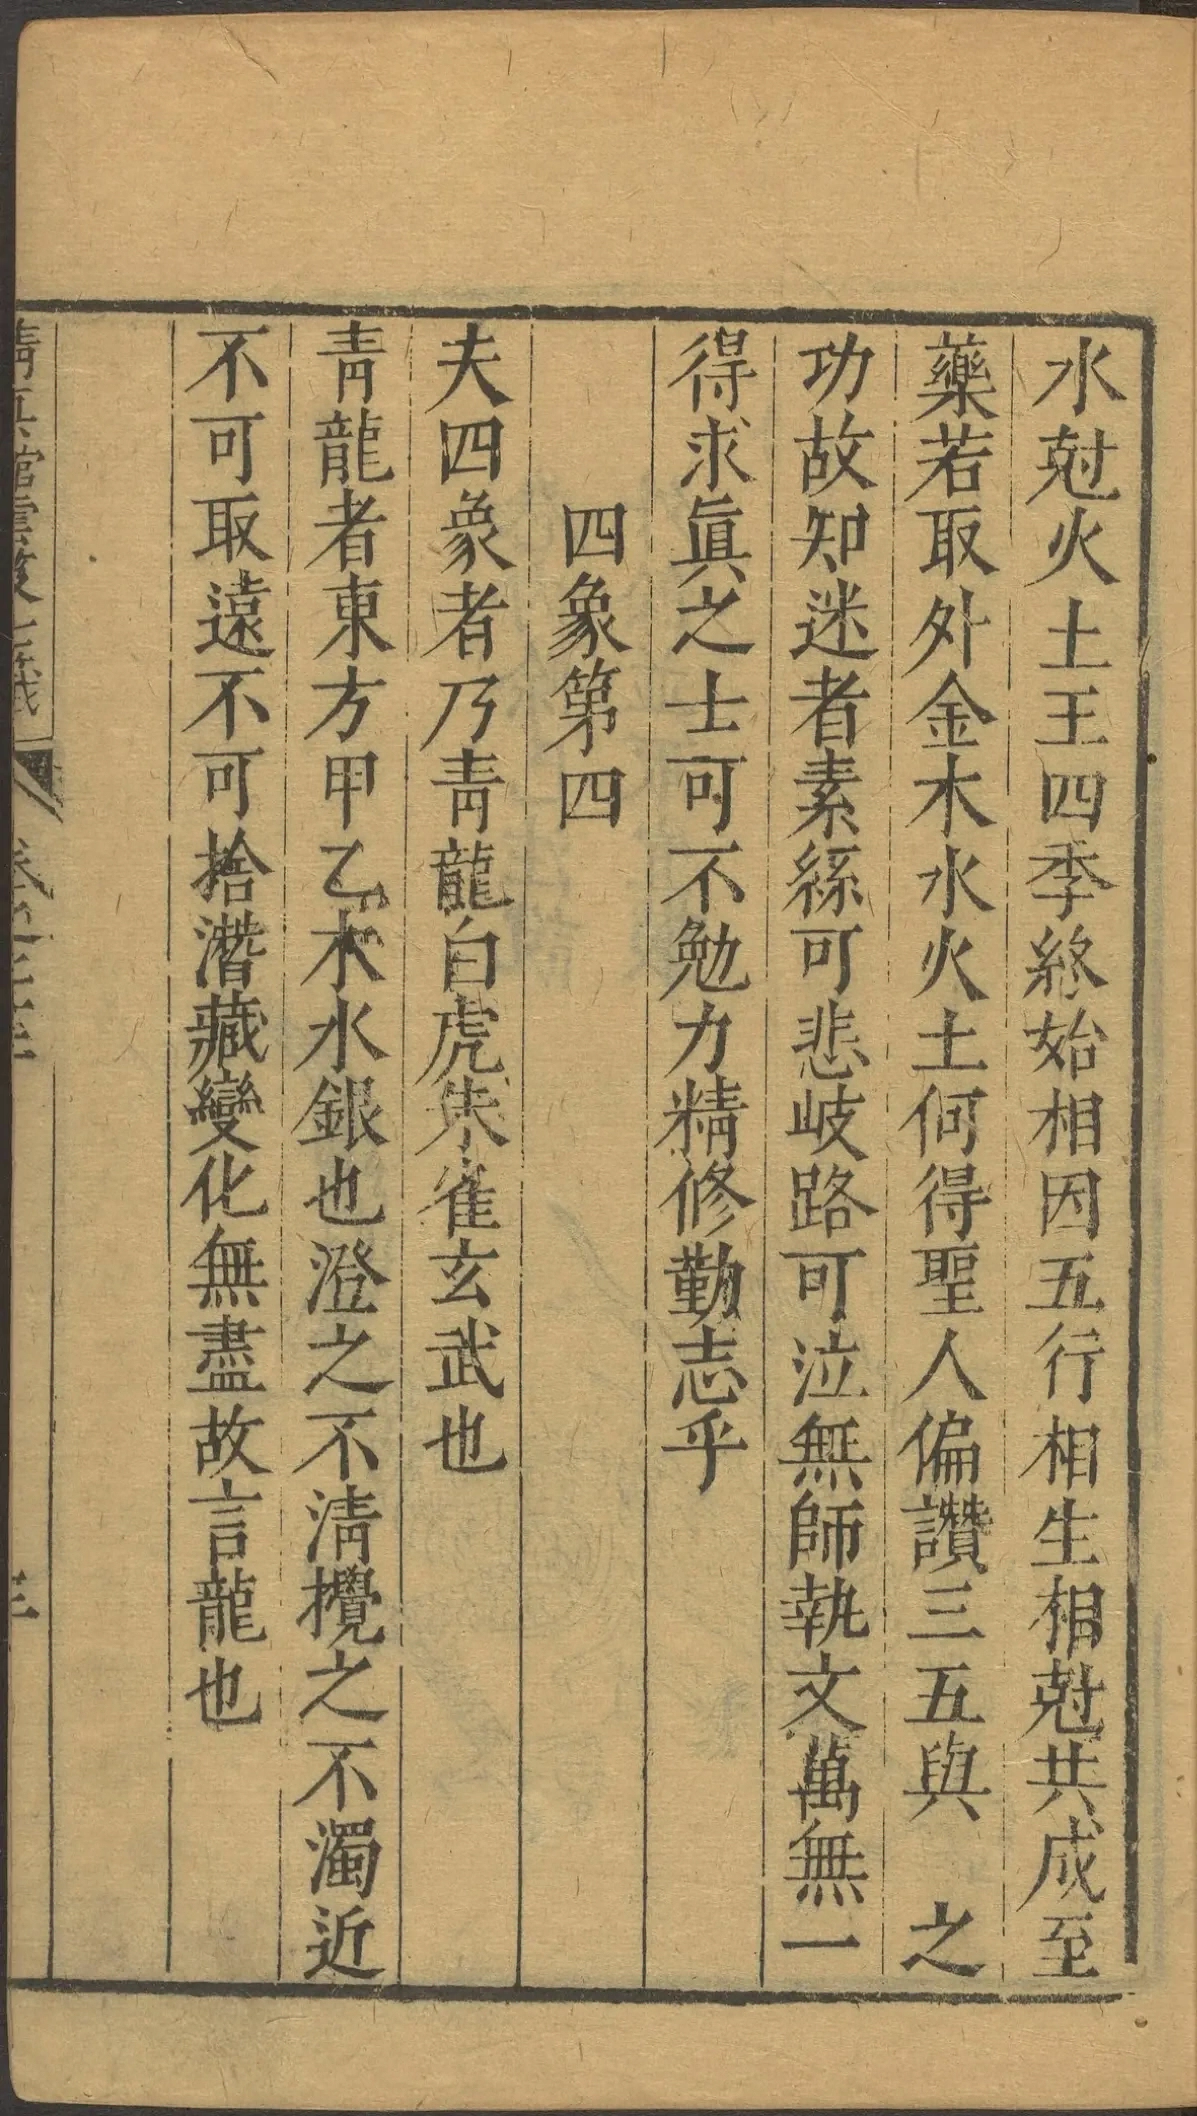 水尅火土王四季終始相因五行相生相尅共成至
藥若取外金木水火土何得聖人偏讚三五與　之
功故知迷者素絲可悲岐路可泣無師執文萬無一
得求眞之士可不勉力精修勤志乎
四象第四
夫四象者乃靑龍白虎朱雀玄武也
靑龍者東方甲乙木水銀也澄之不淸攪之不濁近
不可取遠不可捨潛藏變化無盡故言龍也